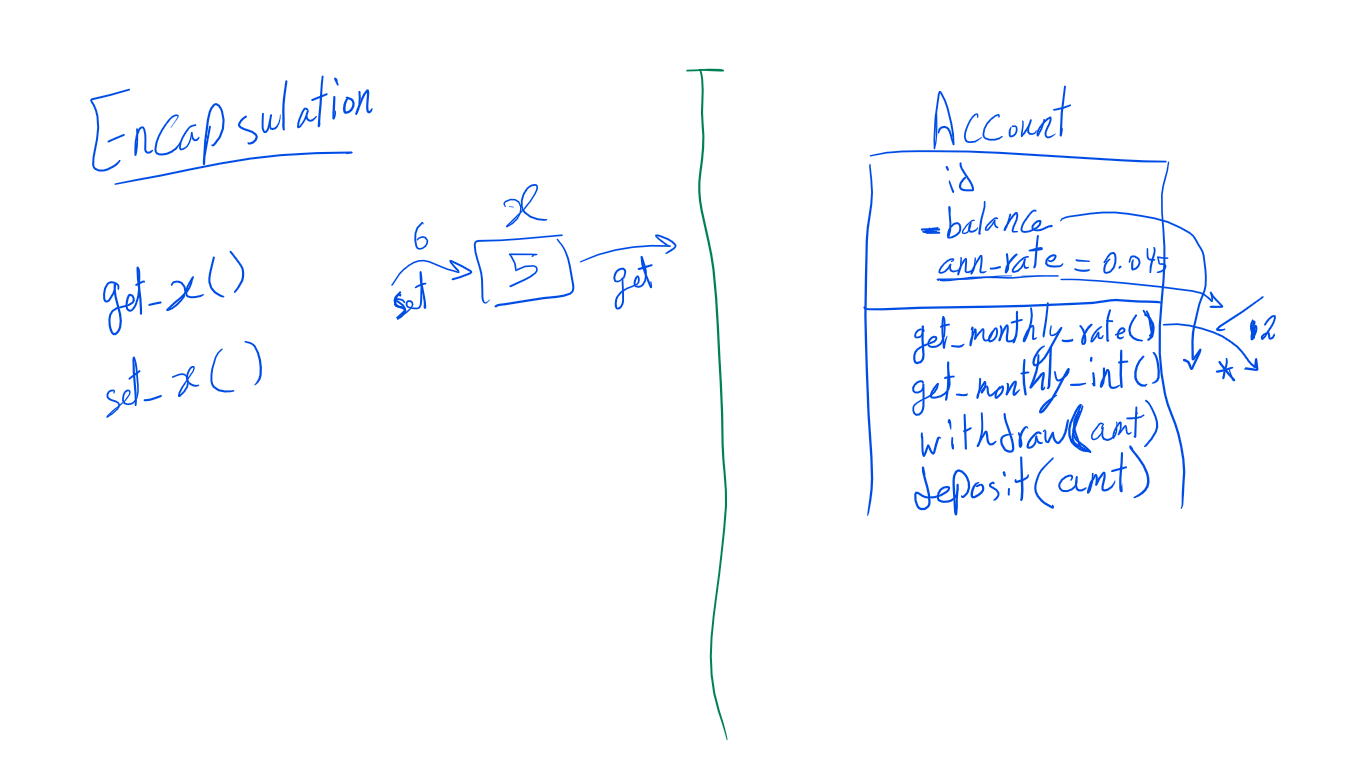 Encapsulation
x
6
5
set
get
get_x()
set_x()
Account
id
-balance
ann-rate = 0.045
get_monthly_rate()
/ 12
get_monthly_int()
*
withdraw(amt)
deposit(amt)